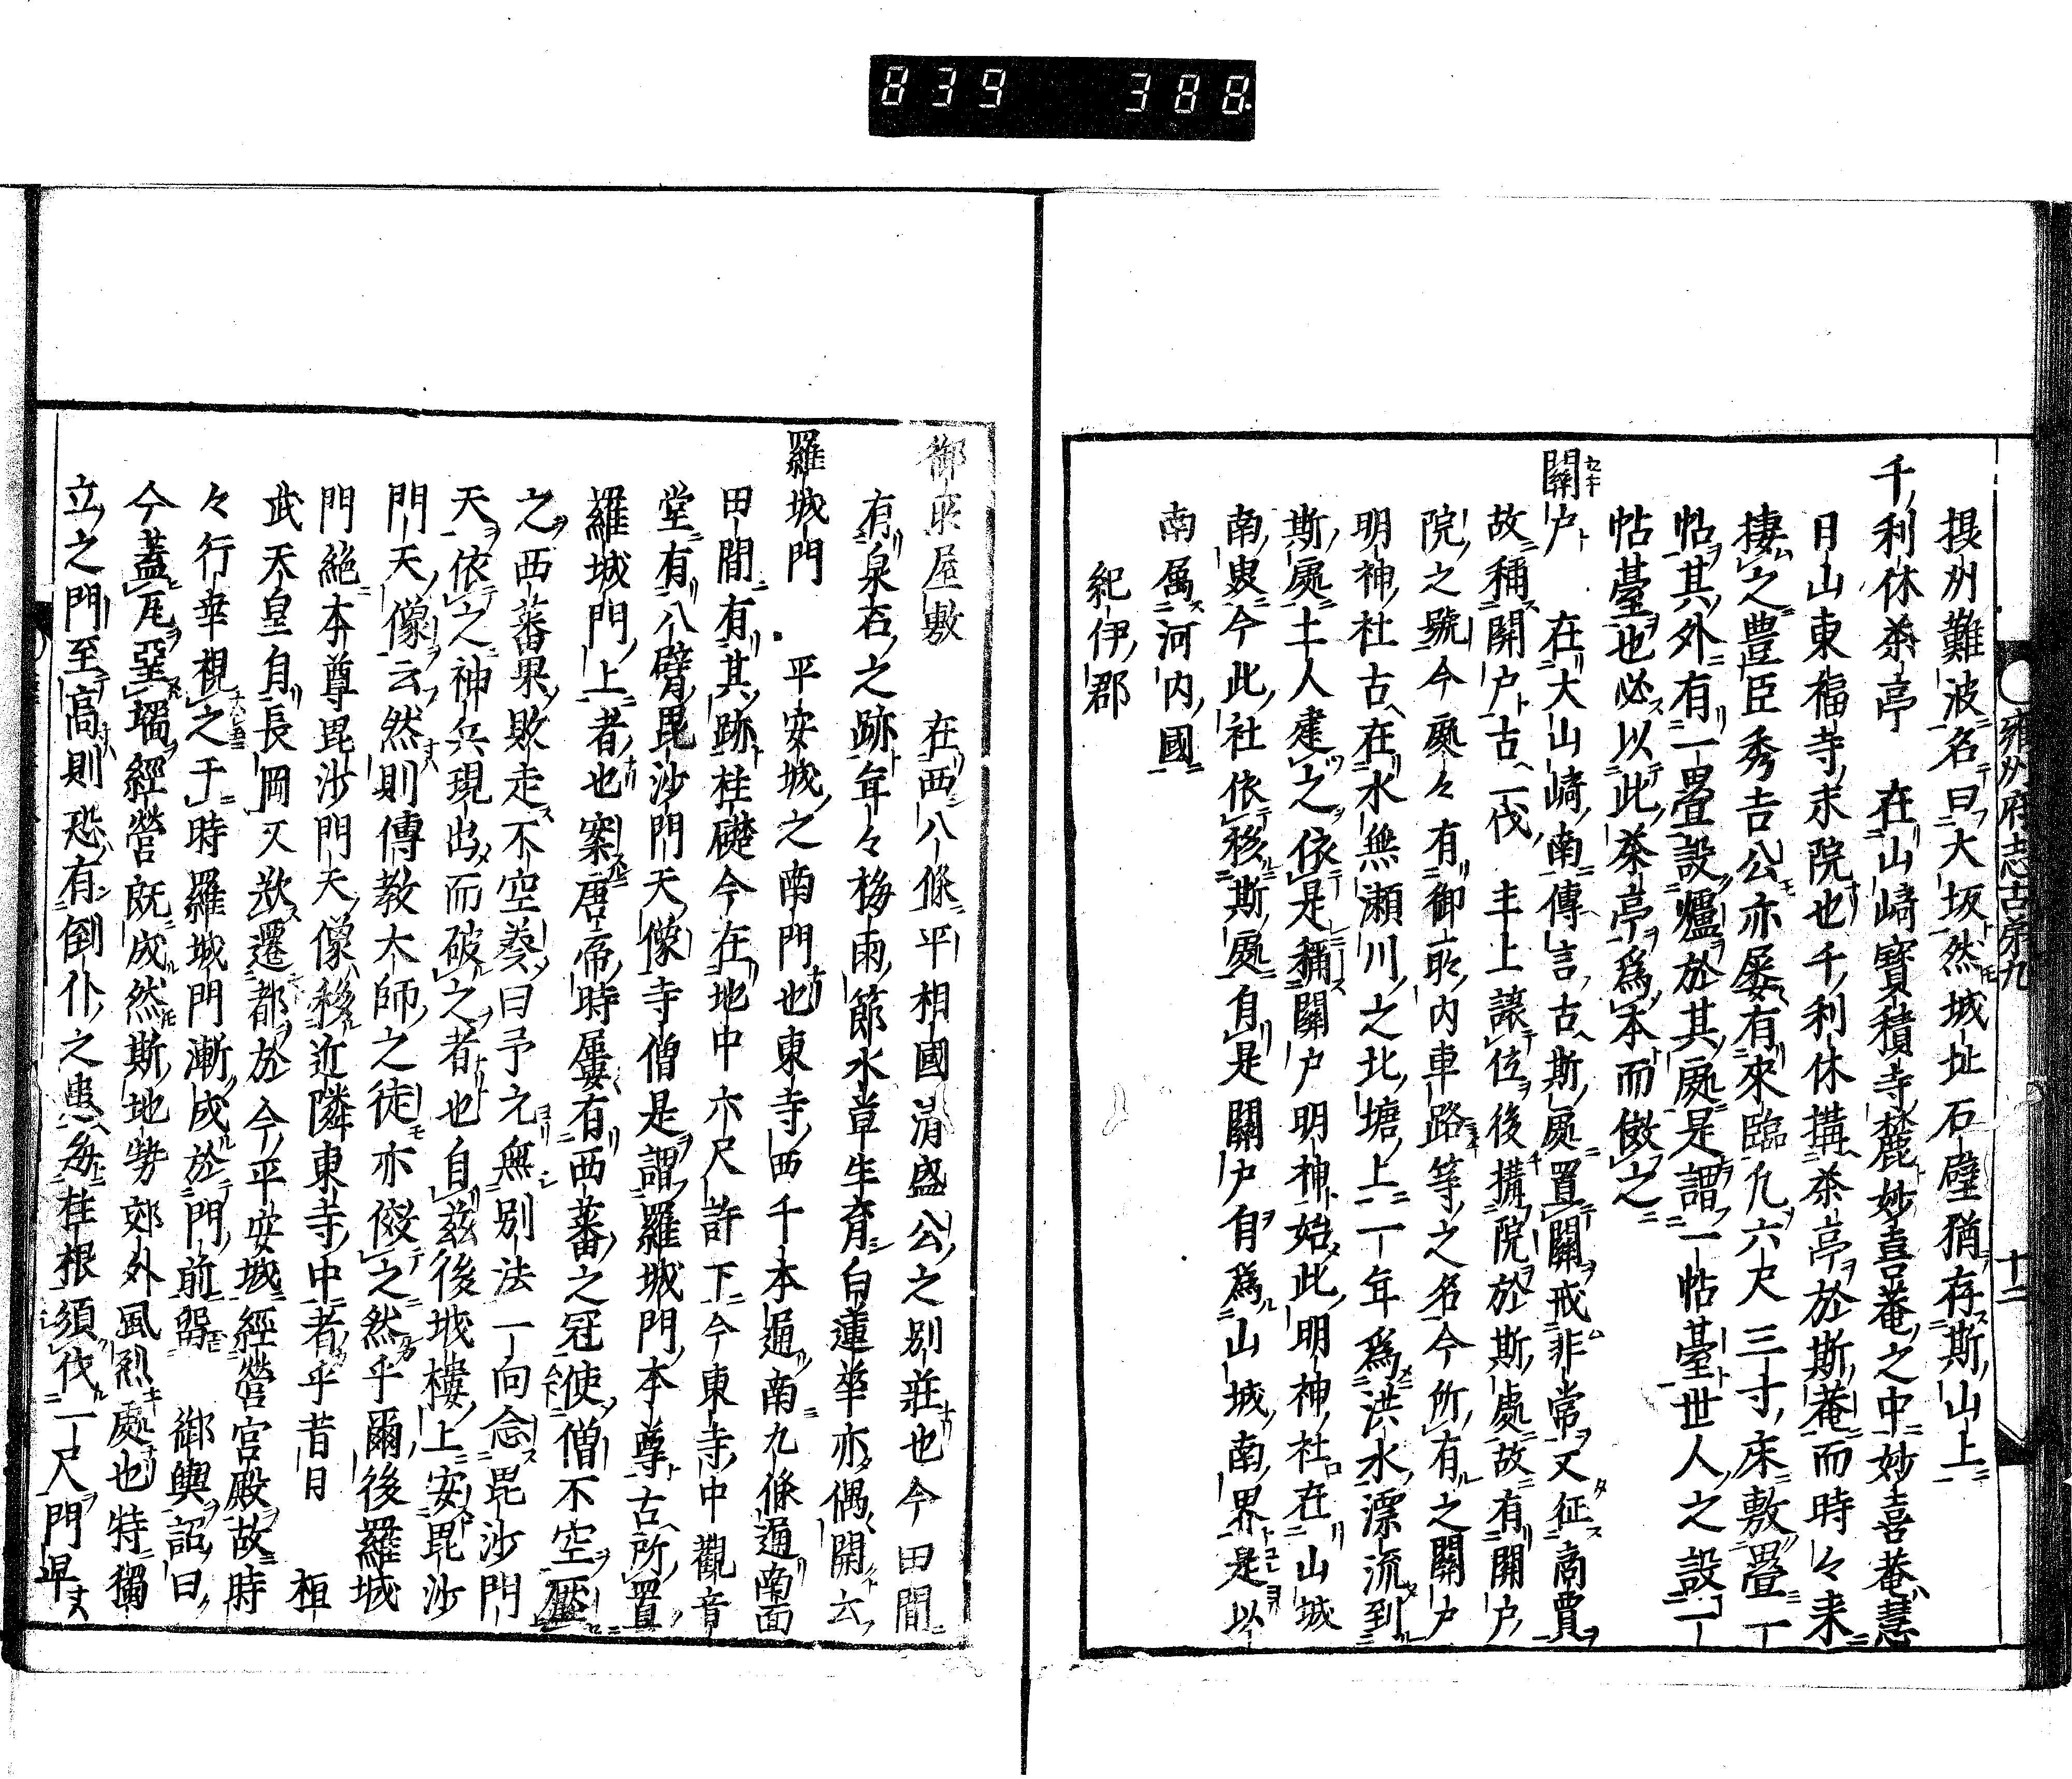 839 388
雍州府志古第九
十二
摂州難波名曰大坂然城址石壁猶存斯山上
千利休茶亭 在山崎寶積寺麓妙喜菴之中妙喜菴慧
日山東福寺求院也千利休搆茶亭於斯菴而時々来
棲之豊臣秀吉公亦屡有來臨九六尺三寸床敷畳一
帖其外有一畳設爐於其處是謂一帖臺世人之設一
帖臺也必以此茶亭爲本而傚之
關戸 在大山崎南傳言古斯處置關戒非常又征商賈
故稱關戸古一伐 丰上譲位後搆院於斯處故有關戸
院之號今處々有御所内車路等之名今所有之關戸
明神社古在水無瀬川之北塘上一年爲洪水漂流到
斯處土人建之依是稱關戸明神始此明神社在山城
南叟今此社依移斯處自是關戸自爲山城南界是以
南属河内國
紀伊郡
御所屋敷 在西八條平相國清盛公之別莊也今田間
有泉石之跡年々梅雨節水草生育白蓮華亦偶開云
羅城門 平安城之南門也東寺西千本通南九條通南面
田間有其跡柱礎今在地中六尺許下今東寺中觀音
堂有八臂毘沙門天像寺僧是謂羅城門本尊古所置
羅城門上者也案唐帝時屢有西蕃之冦使僧不空壓
之西蕃果敗走不空奏曰予元無別法一向念毘沙門
天依之神兵現出而破之者也自茲後城樓上安毘沙
門天像云然則傳教大師之徒亦傚之然乎爾後羅城
門絶本尊毘沙門天像移近隣東寺中者乎昔日 桓
武天皇自長岡又欲遷都於今平安城經營宮殿故時
々行幸視之于時羅城門漸成於門前留 御輿詔曰
今蓋瓦堊墻經營既成然斯地勢郊外風烈處也特獨
立之門至高則恐有倒仆之患毎柱根須伐一尺門卑